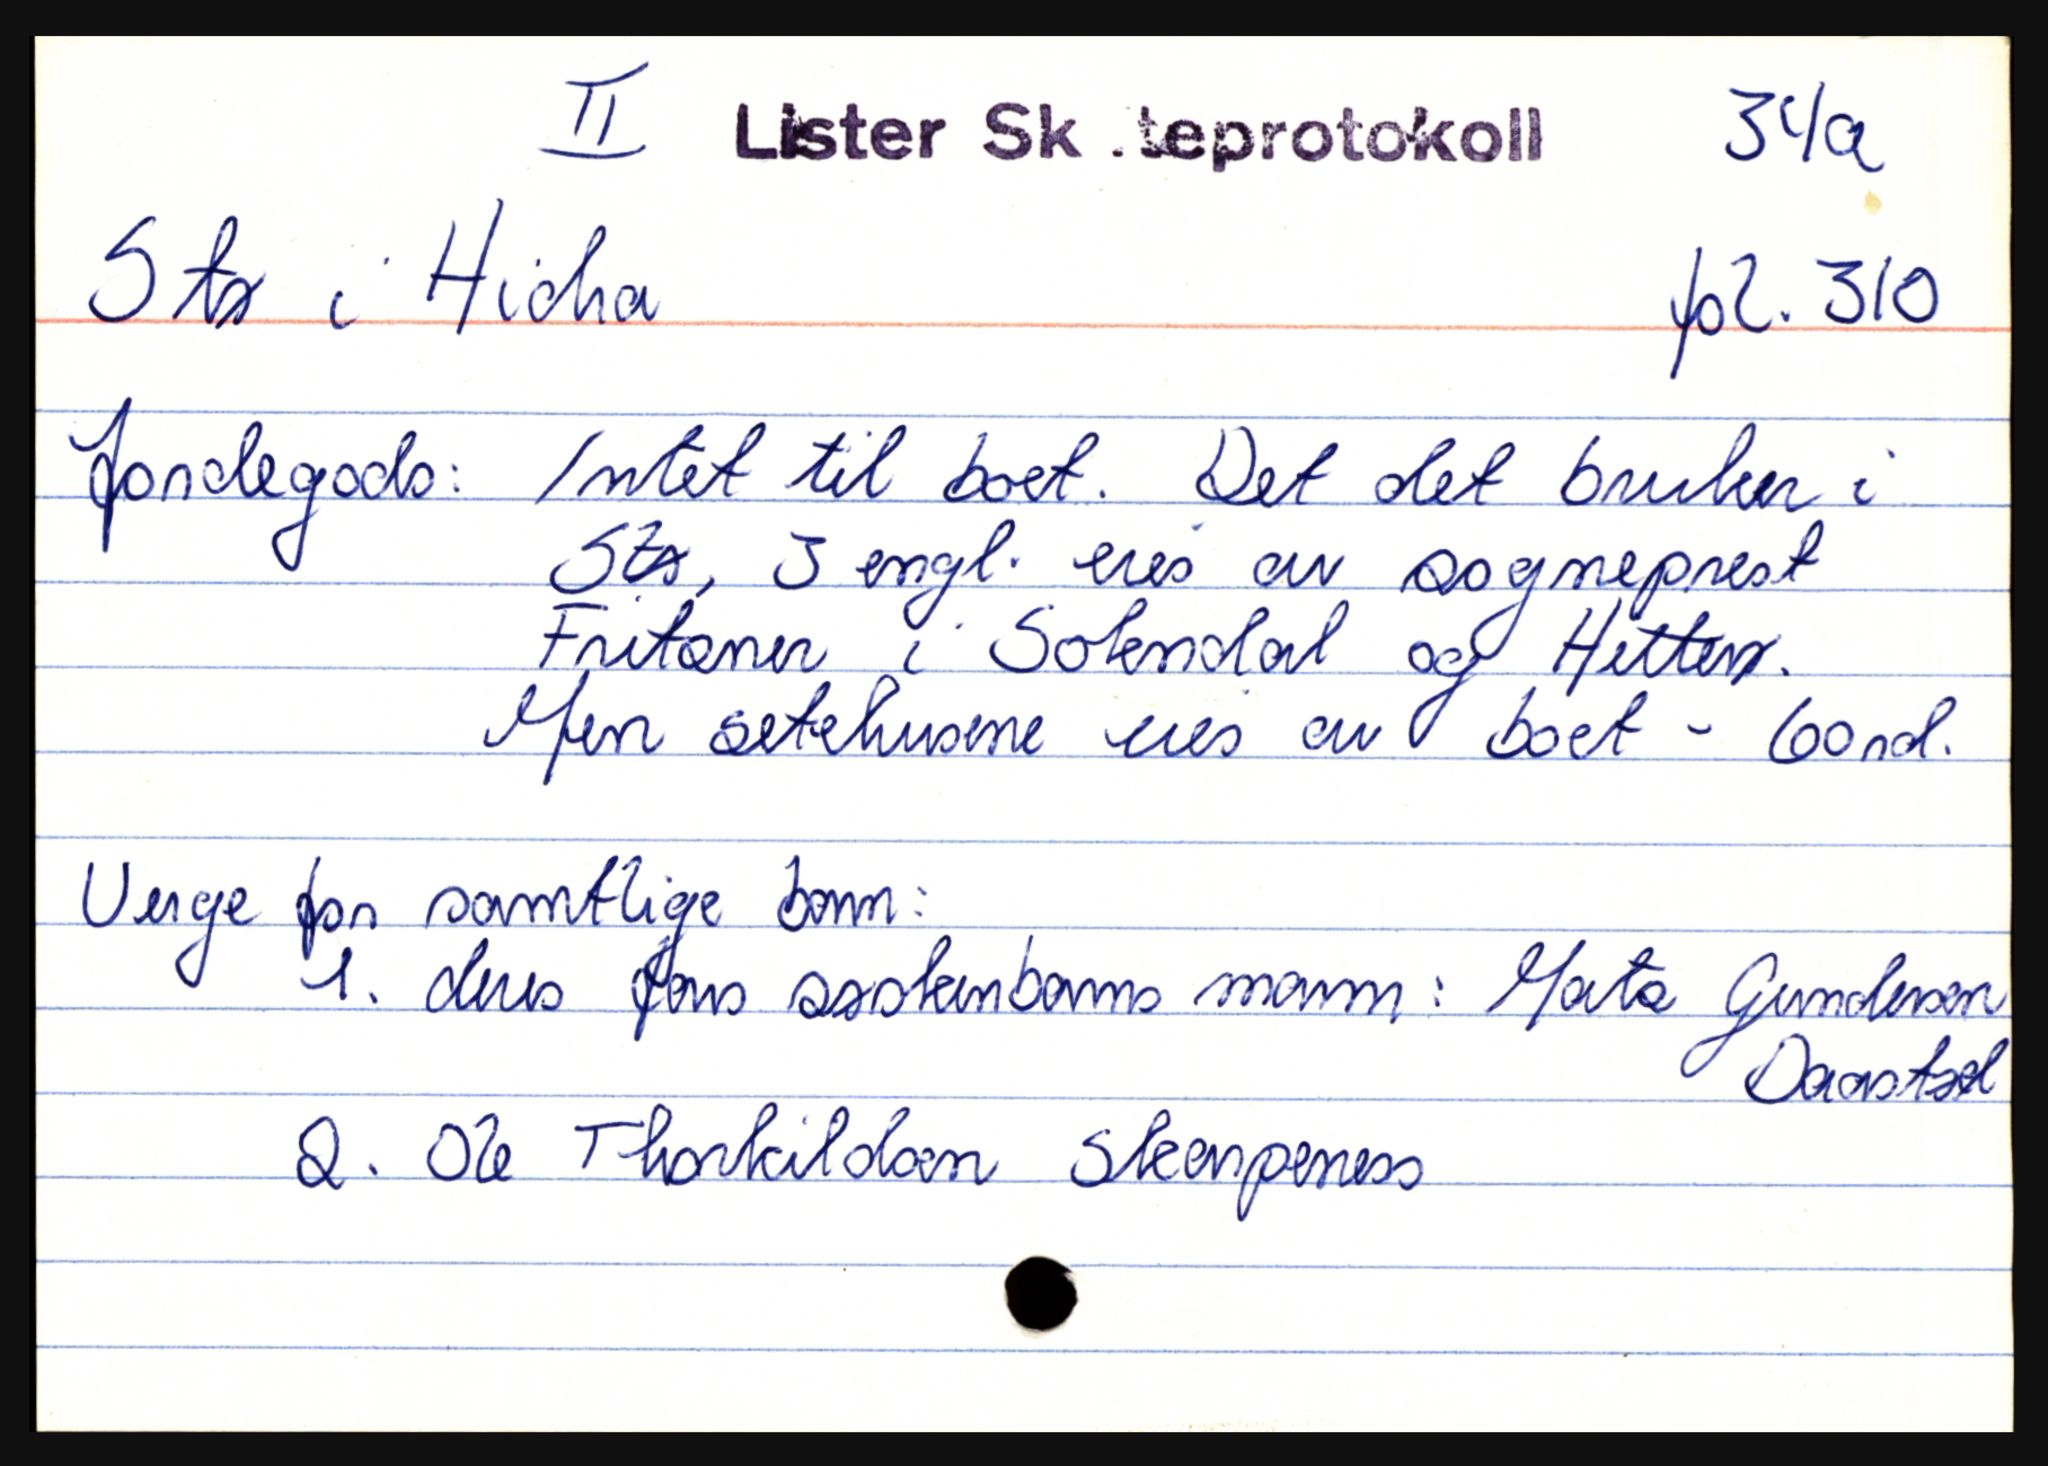 II Lister Sk .teprotokoll 34a
Stø i Hidra fol. 310
Jordegods: Intet til boet. Det det bruker i
Stø, 3 engl. eies av sogneprest
Fritzner i Sokndal og Hitterø.
Men setehusene eies av boet - 60 rd.
Verge for samtlige barn:
1. deres fars søskenbarns mann: Mats Gundersen
Daastøl
2. Ole Thorkildsen Skarpeness